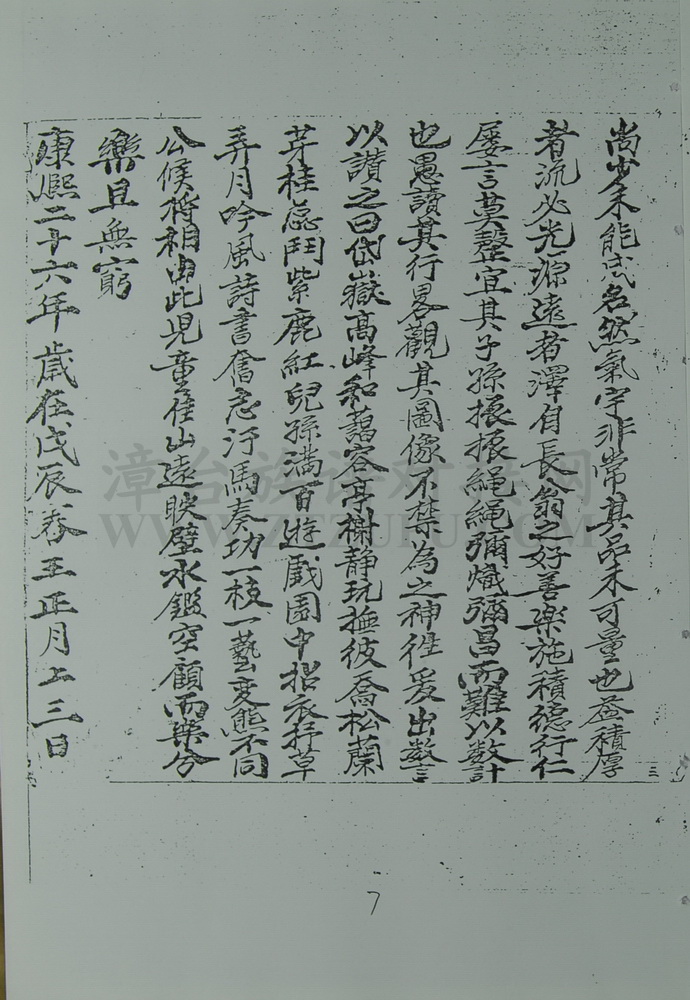 尚少未能成名然氣宇非常其品未可量也葢積厚
者流必光源遠者澤自長翁之好善樂施積德行仁
屡言莫罄宜其子孫振振繩繩彌熾彌昌而難以数計
也愚讀其行畧觀其圖像不禁為之神徃爰出数言
以讃之曰岱嶽高峰和藹容亭榭靜玩撫彼喬松蘭
芽桂蕊鬥紫鹿紅兒孫滿百遊戲園中招衣拝草
弄月吟風詩書奮志汗馬奏功一枝一藝变態不同
公侯将相由此児童隹山遠映璧水鑑空顧而樂兮
樂且無窮
康熙二十六年歲在戊辰春王正月上三日
三
7
漳台族谱对接网